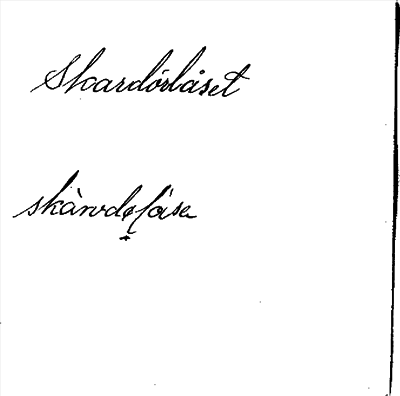 Skardörlåset
skàrdəlåsa